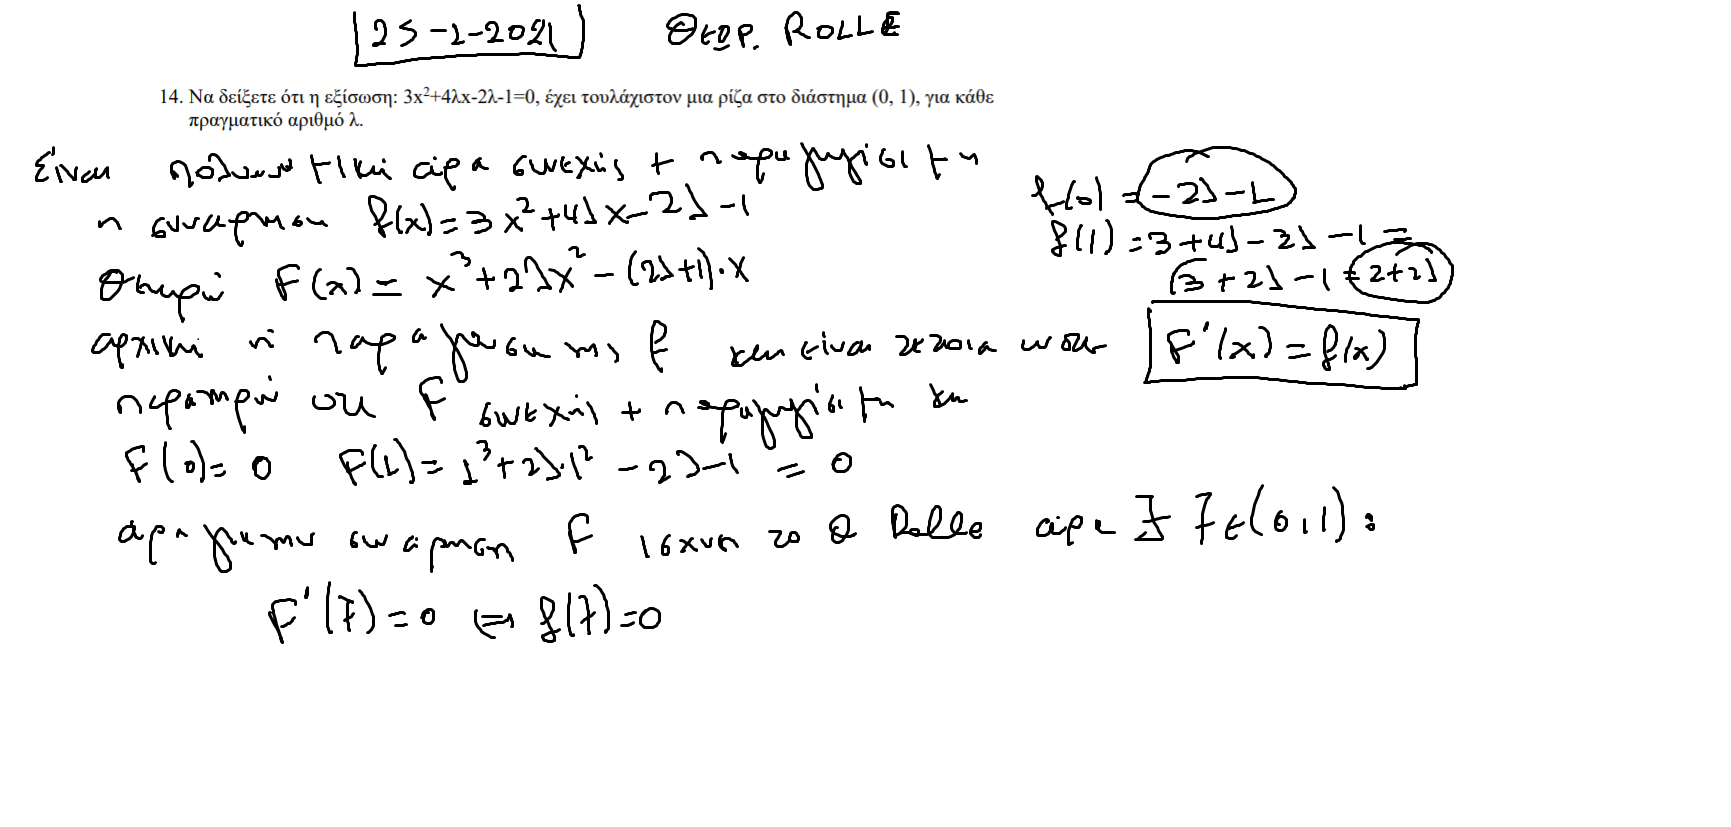 25-1-2021 Θεωρ. ROLLE
14. Να δείξετε ότι η εξίσωση: 3x²+4λx-2λ-1=0, έχει τουλάχιστον μια ρίζα στο διάστημα (0, 1), για κάθε
πραγματικό αριθμό λ.
Είναι πολυωνυμική άρα συνεχής + παραγωγίσιμη
η συνάρτηση f(x)=3x²+4λx-2λ-1
f(0) = -2λ-1
f(1) = 3+4λ-2λ-1 =
3+2λ-1 = 2+2λ
Θεωρώ F(x) = x³+2λx²-(2λ+1)·x
αρχική ή παράγουσα της f και είναι τέτοια ώστε F'(x)=f(x)
παρατηρώ ότι F συνεχής + παραγωγίσιμη και
F(0)=0 F(1)=1³+2λ·1²-2λ-1 = 0
άρα για την συνάρτηση F ισχύει το Θ Rolle άρα ∃ ξ∈(0,1):
F'(ξ)=0 ⇔ f(ξ)=0